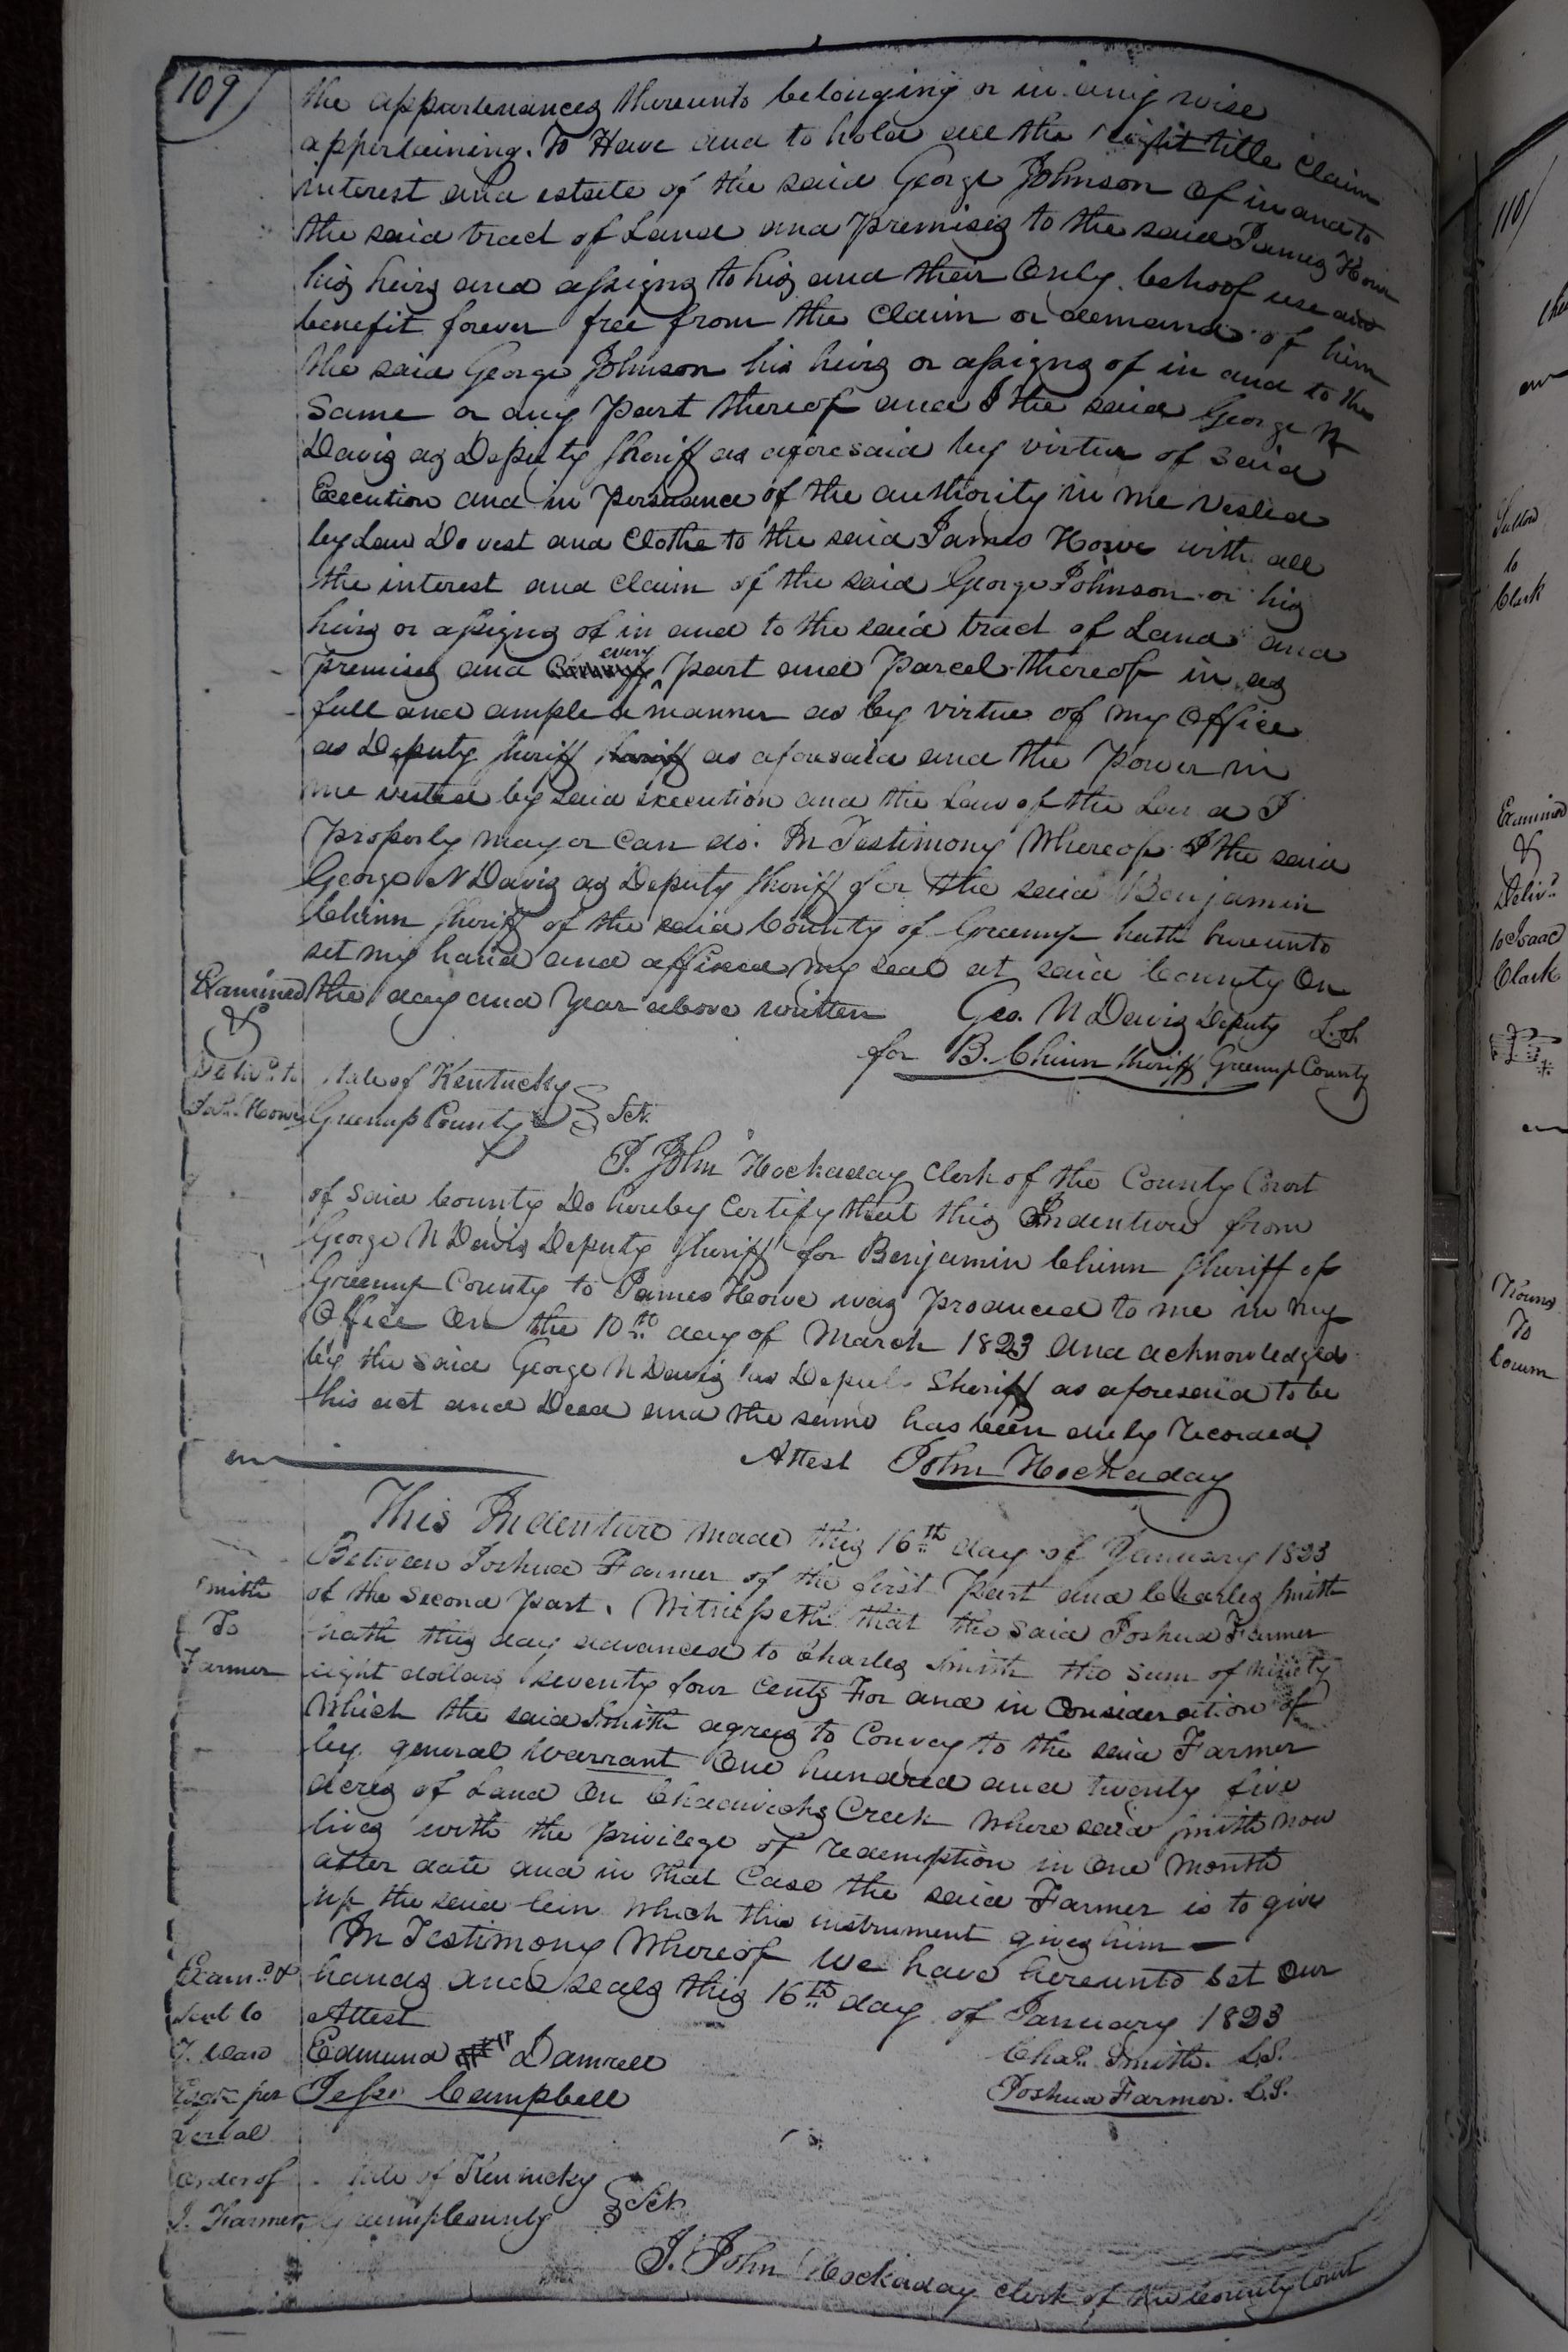 109
the appurtenances thereunto belonging or in any wise
appertaining. To Have and to hold all the right title claim
interest and estate of the said George Johnson of in and to
the said tract of Land and premises to the said James Howe
his heirs and assigns to his and their Only behoof use and
benefit forever free from the claim or demand of him
the said George Johnson his heirs or assigns of in and to the
Same or any part thereof and I the said George N
Davis as Deputy Sheriff as aforesaid by virtue of said
Execution and in persuance of the authority in me vested
by Law Do vest and Clothe to the said James Howe with all
the interest and claim of the said George Johnson or his
heirs or assigns of in and to the said tract of Land and
premises and every part and parcel thereof in as
full and ample a manner as by virtue of my Office
as Deputy Sheriff Sheriff as aforesaid and the Power in
me vested by said execution and the Law of the Land I
properly may or Can do. In Testimony Whereof I the said
George N Davis as Deputy Sheriff for the said Benjamin
Chinn Sheriff of the said County of Greenup hath hereunto
set my hand and affixed my seal at said County On
the day and Year above written Geo. N Davis Deputy L.S.
for B. Chinn Sheriff Greenup County
Examined
&
Deliv.d to
Jas. Howe
State of Kentucky
Greenup County Sct.
I. John Hockaday Clerk of the County Court
of said County Do hereby Certify that this Indenture from
George N Davis Deputy Sheriff for Benjamin Chinn Sheriff of
Greenup County to James Howe was produced to me in my
Office On the 10th day of March 1823 And acknowledged
by the said George N Davis as Deputy Sheriff as aforesaid to be
his act and Deed and the same has been duly recorded
Attest John Hockaday
This Indenture made this 16th day of January 1823
Between Joshua Farmer of the first Part and Charles Smith
of the Second Part. Witnesseth that the said Joshua Farmer
hath this day advanced to Charles Smith the Sum of ninety
eight dollars seventy four Cents For and in Consideration of
Which the said Smith agrees to Convey to the said Farmer
by general Warrant One hundred and twenty five
acres of Land On Chadwicks Creek Where said Smith now
lives with the privilege of redemption in One Month
after date and in that Case the said Farmer is to give
up the said lein which this instrument gives him
In Testimony Whereof We have hereunto Set Our
hands and seals this 16th day of January 1823
Smith
To
Farmer
Attest
Edmund Damrell
Jesse Campbell
Chas. Smith. L.S.
Joshua Farmer. L.S.
Exam.d &
Sent to
T. Ward
Esqr. per
verbal
order of
J. Farmer
State of Kentucky
Greenup County Sct.
I. John Hockaday Clerk of the County Court
110
Sutton
to
Clark
Examined
&
Deliv.d
to Isaac
Clark
To